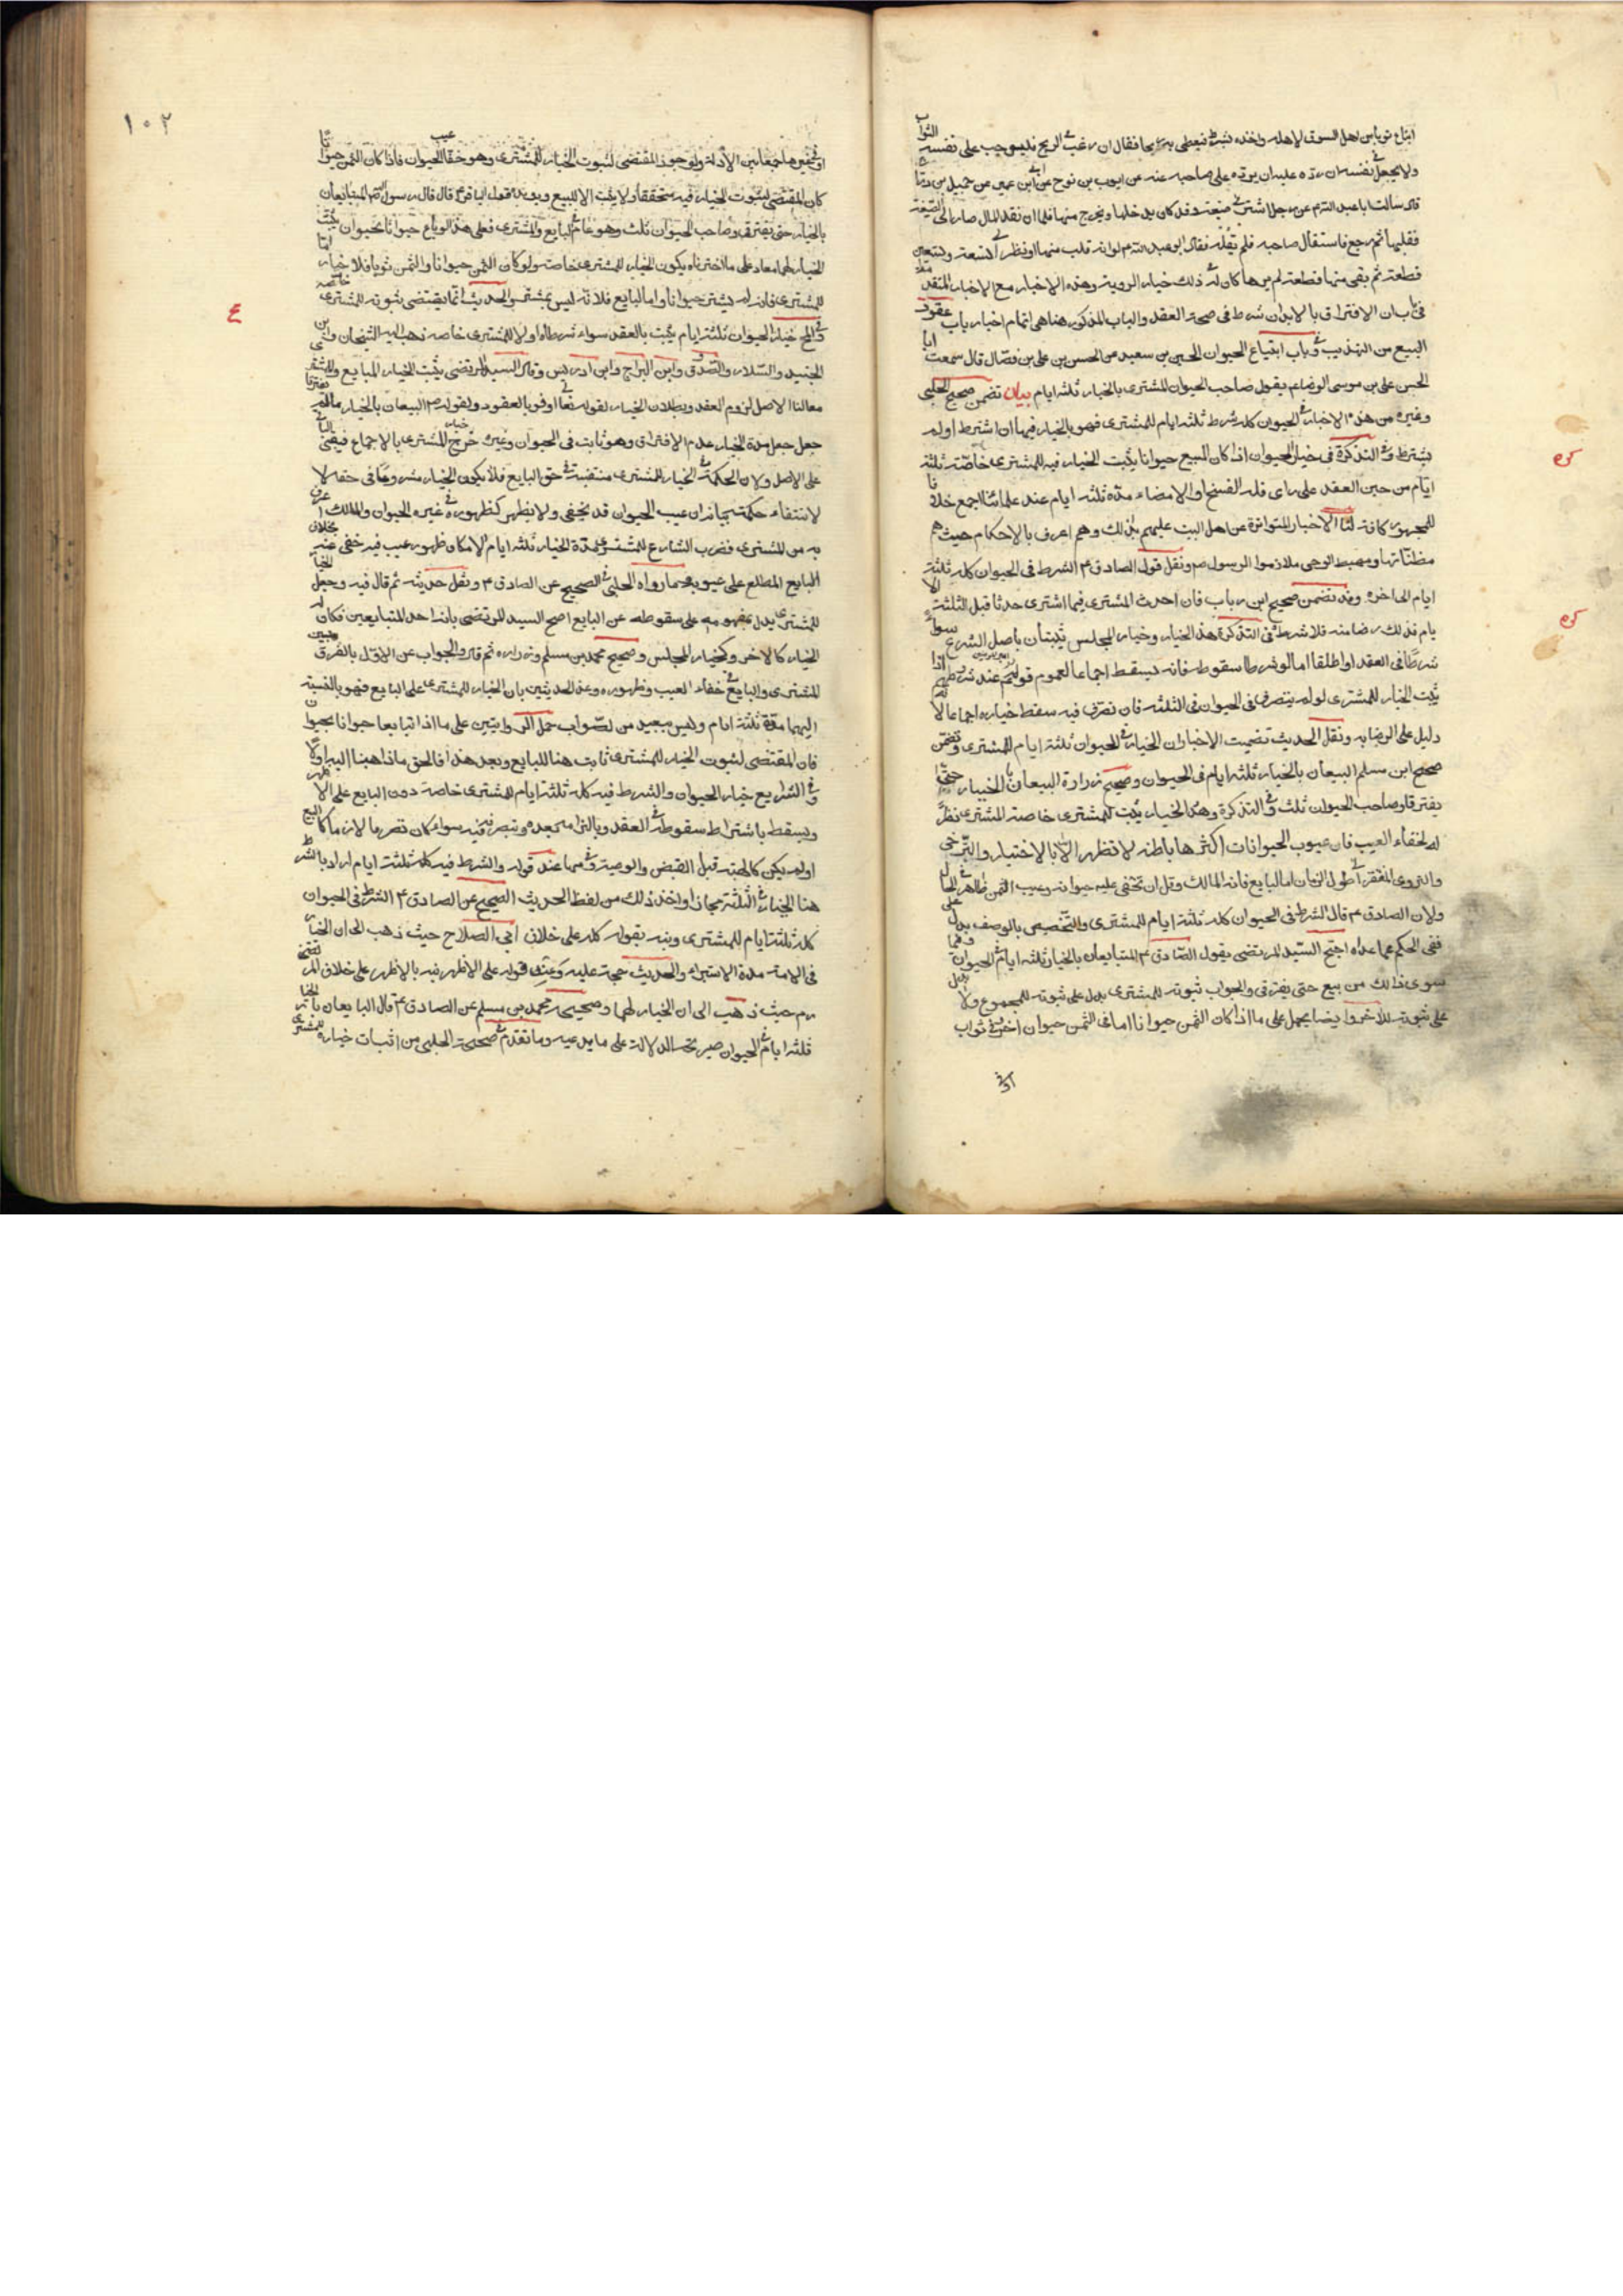 ابتاع ثوبا من اهل السوق لاهله واخذه بشرط فيعطى به ربحا فقال ان رغب في الربح فليوجب على نفسه الثوب
ولا يجعل في نفسه ان رده عليه ان يرده على صاحبه عنه عن ايوب بن نوح عن ابن ابي عمير عن جميل بن دراج
قال سالت ابا عبد الله عن رجل اشترى ضيعة وقد كان يدخلها ويخرج منها فلما ان نقد المال صار الى الضيعة
فقلبها ثم رجع فاستقال صاحبه فلم يقله فقال ابو عبد الله ع لو انه قلب منها او نظر الى تسعة وتسعين
قطعة ثم بقى منها قطعة لم يرها كان له في ذلك خيار الروية وهذه الاخبار مع الاخبار المتقدمة
في باب ان الافتراق بالابدان شرط في صحة العقد والباب المذكور هنا هي تمام اخبار باب عقود
البيع من التهذيب وفي باب ابتياع الحيوان الحسين بن سعيد عن الحسن بن علي بن فضال قال سمعت ابا
الحسن علي بن موسى الرضا ع يقول صاحب الحيوان المشترى بالخيار ثلثه ايام بيان تضمن صحيح الحلبي
وغيره من هذه الاخبار في الحيوان كله شرط ثلثه ايام للمشترى فهو بالخيار فيها ان اشترط او لم
يشترط وفي التذكرة في خيار الحيوان اذا كان المبيع حيوانا يثبت الخيار فيه للمشترى خاصة ثلثة
ايام من حين العقد على راى فله الفسخ او الامضاء مدة ثلثه ايام عند علمائنا اجمع خلافا
للجمهور كافة لنا الاخبار المتواترة عن اهل البيت عليهم بذلك وهم اعرف بالاحكام حيث هم
مظناتها ومهبط الوحى ملازموا الرسول ص ونقل قول الصادق ع الشرط في الحيوان كله ثلثة
ايام الى اخره وقد تضمن صحيح ابن رباب فان احدث المشترى فيما اشترى حدثا قبل الثلثة الا
يام فذلك رضا منه فلا شرط في التذكرة هذا الخيار وخيار المجلس يثبتان باصل الشرع سواء
شرطا في العقد او اطلقا اما لو شرطا سقوطه فانه يسقط اجماعا لعموم قولهم المؤمنون عند شروطهم
يثبت الخيار للمشترى لو لم يتصرف في الحيوان في الثلثه فان تصرف فيه سقط خياره اجماعا لانه
دليل على الرضا به ونقل الحديث تضمنت الاخبار ان الخيار في الحيوان ثلثة ايام للمشترى وتضمن
صحيح ابن مسلم البيعان بالخيار ثلثه ايام في الحيوان وصحيح زرارة البيعان بالخيار حتى
يفترقا وصاحب الحيوان ثلث وفي التذكرة وهذا الخيار يثبت للمشترى خاصة المشترى نظرا
له لخفاء العيب فان عيوب الحيوانات اكثرها باطنه لا تظهر الا بالاختبار والتراخى
والتروى المفتقر الى طول الزمان اما البايع فانه المالك وقل ان تخفى عليه حيوانه وعيب الثمن ظاهر في الحال
ولان الصادق ع قال الشرط في الحيوان كله ثلثة ايام للمشترى والتخصيص بالوصف يدل على
نفى الحكم عما عداه احتج السيد المرتضى بقول الصادق ع المتبايعان بالخيار ثلثه ايام في الحيوان وفيما
سوى ذلك من بيع حتى يفترقا والجواب ثبوته للمشترى يدل على ثبوته للمجموع ولا يدل
على ثبوته للاخر وايضا يحمل على ما اذا كان الثمن حيوانا اما في الثمن حيوان اخر في ثواب
او
١٠٢
او في غيرها جمعا بين الادلة ولوجود المقتضى لثبوت الخيار للمشترى وهو خفاء عيب الحيوان فاذا كان الثمن حيوانا
كان المقتضى لثبوت الخيار فيه متحققا ولا يثبت الا للبيع ويويده قول الباقر ع قال قال رسول الله ص المتبايعان
بالخيار حتى يفترقا وصاحب الحيوان ثلث وهو عام في البايع والمشترى فعلى هذا لو باع حيوانا بحيوان يثبت
الخيار لهما معا وعلى ما اخترناه يكون الخيار للمشترى خاصة ولو كان الثمن حيوانا والثمن ثوبا فلا خيار اما
المشترى فانه لم يشتر حيوانا واما البايع فلانه ليس بمشتر والحديث انما يقتضى ثبوته للمشترى خاصة
وفي المخ خيار الحيوان ثلثة ايام يثبت بالعقد سواء شرطاه او لا للمشترى خاصه ذهب اليه الشيخان وابن
الجنيد والسلار والصدوق وابن البراج وابن ادريس وقال السيد المرتضى يثبت الخيار للبايع والمشترى
معا لنا الاصل لزوم العقد وبطلان الخيار لقوله تعا اوفوا بالعقود وبقوله ص البيعان بالخيار ما لم يفترقا
جعل جعل مدة الخيار عدم الافتراق وهو ثابت في الحيوان وغيره خرج خيار المشترى بالاجماع فيبقى الباقى
على الاصل ولان الحكمة في الخيار للمشترى منتفية في حق البايع فلا يكون الخيار مشروعا في حقه لا
لانتفاء حكمته بيانه ان عيب الحيوان قد يخفى ولا يظهر كظهوره في غيره الحيوان والمالك اعرف
به من المشترى فضرب الشارع للمشترى مدة الخيار ثلثه ايام لامكان ظهور عيب فيه خفى عنه بخلاف
البايع المطلع على عيوبه وما رواه الحلبي في الصحيح عن الصادق ع ونقل حديثه ثم قال فيه وجعل الخيار
للمشترى يدل بمفهومه على سقوطه عن البايع احتج السيد المرتضى بانه احد المتبايعين فكان له
الخيار كالاخر وكخيار المجلس وصحيح محمد بن مسلم وزراره ثم قال والجواب عن الاول بالفرق بين
المشترى والبايع في خفاء العيب وظهوره وعن الحديثين بان الخيار للمشترى على البايع فهو بالنسبة
اليهما مدة ثلثة ايام وليس ببعيد من الصواب حمل الروايتين على ما اذا تبايعا حيوانا بحيوان
فان المقتضى لثبوت الخيار للمشترى ثابت هنا للبايع وبعد هذا فالحق ما ذهبنا اليه اولا
وفي الشرايع خيار الحيوان والشرط فيه كله ثلثة ايام للمشترى خاصة دون البايع على الاظهر
ويسقط باشتراط سقوطه في العقد وبالتزامه بعده وبتصرفه فيه سواء كان تصرفا لازما كالبيع
او لم يكن كالهبة قبل القبض والوصية وفيها عند قوله والشرط فيه كله ثلثة ايام اراد بالشرط
هنا الخيار في الثلثة مجازا واخذ ذلك من لفظ الحديث الصحيح عن الصادق ع الشرط في الحيوان
كله ثلثة ايام للمشترى ونبه بقوله كله على خلاف ابي الصلاح حيث ذهب الى ان الخيار
في الامة مدة الاستبراء والحديث حجة عليه وعند قوله على الاظهر نبه بالاظهر على خلاف المرتضى
رم حيث ذهب الى ان الخيار لهما وصحيحة محمد بن مسلم عن الصادق ع قال البايعان بالخيار
ثلثه ايام في الحيوان صريحة الدلالة على ما يدعيه وما تقدم في صحيحة الحلبي من اثبات خياره للمشترى